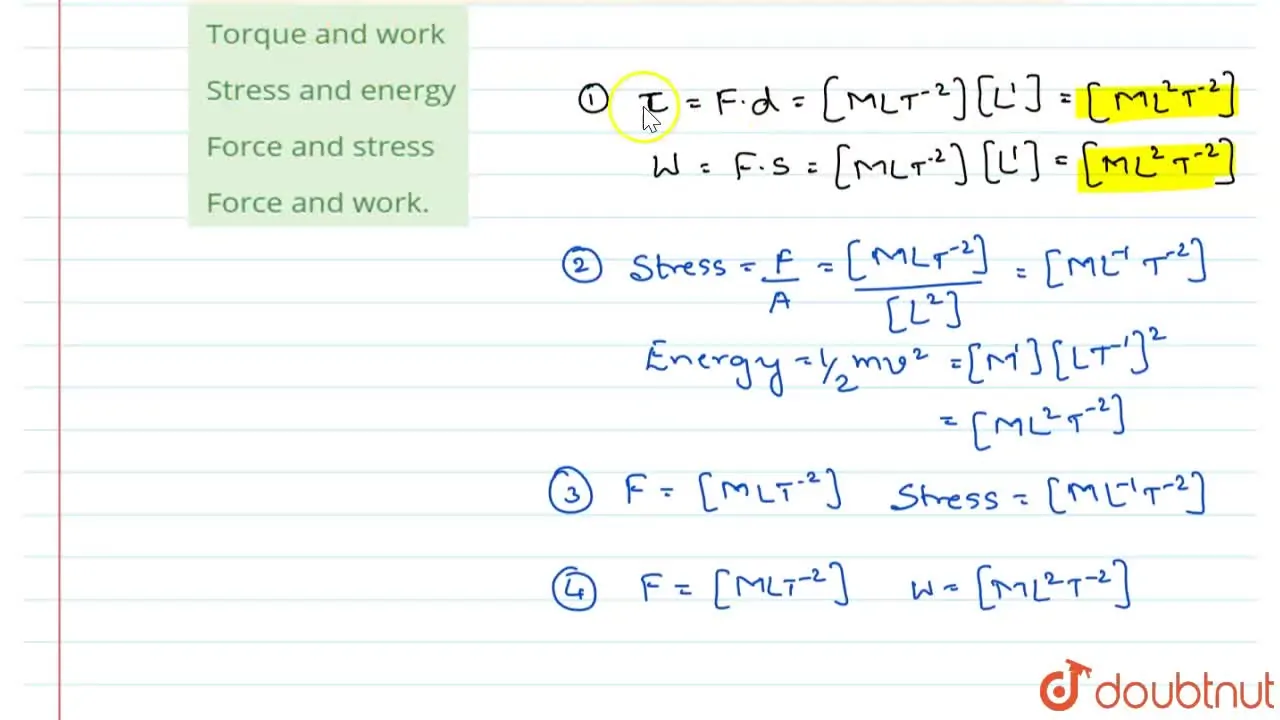 Torque and work
Stress and energy
Force and stress
Force and work.
① τ = F.d = [MLT⁻²] [L¹] = [ML²T⁻²]
W = F.s = [MLT⁻²] [L¹] = [ML²T⁻²]
② Stress = F/A = [MLT⁻²]/[L²] = [ML⁻¹T⁻²]
Energy = 1/2 mv² = [M¹] [LT⁻¹]²
= [ML²T⁻²]
③ F = [MLT⁻²] Stress = [ML⁻¹T⁻²]
④ F = [MLT⁻²] W = [ML²T⁻²]
doubtnut